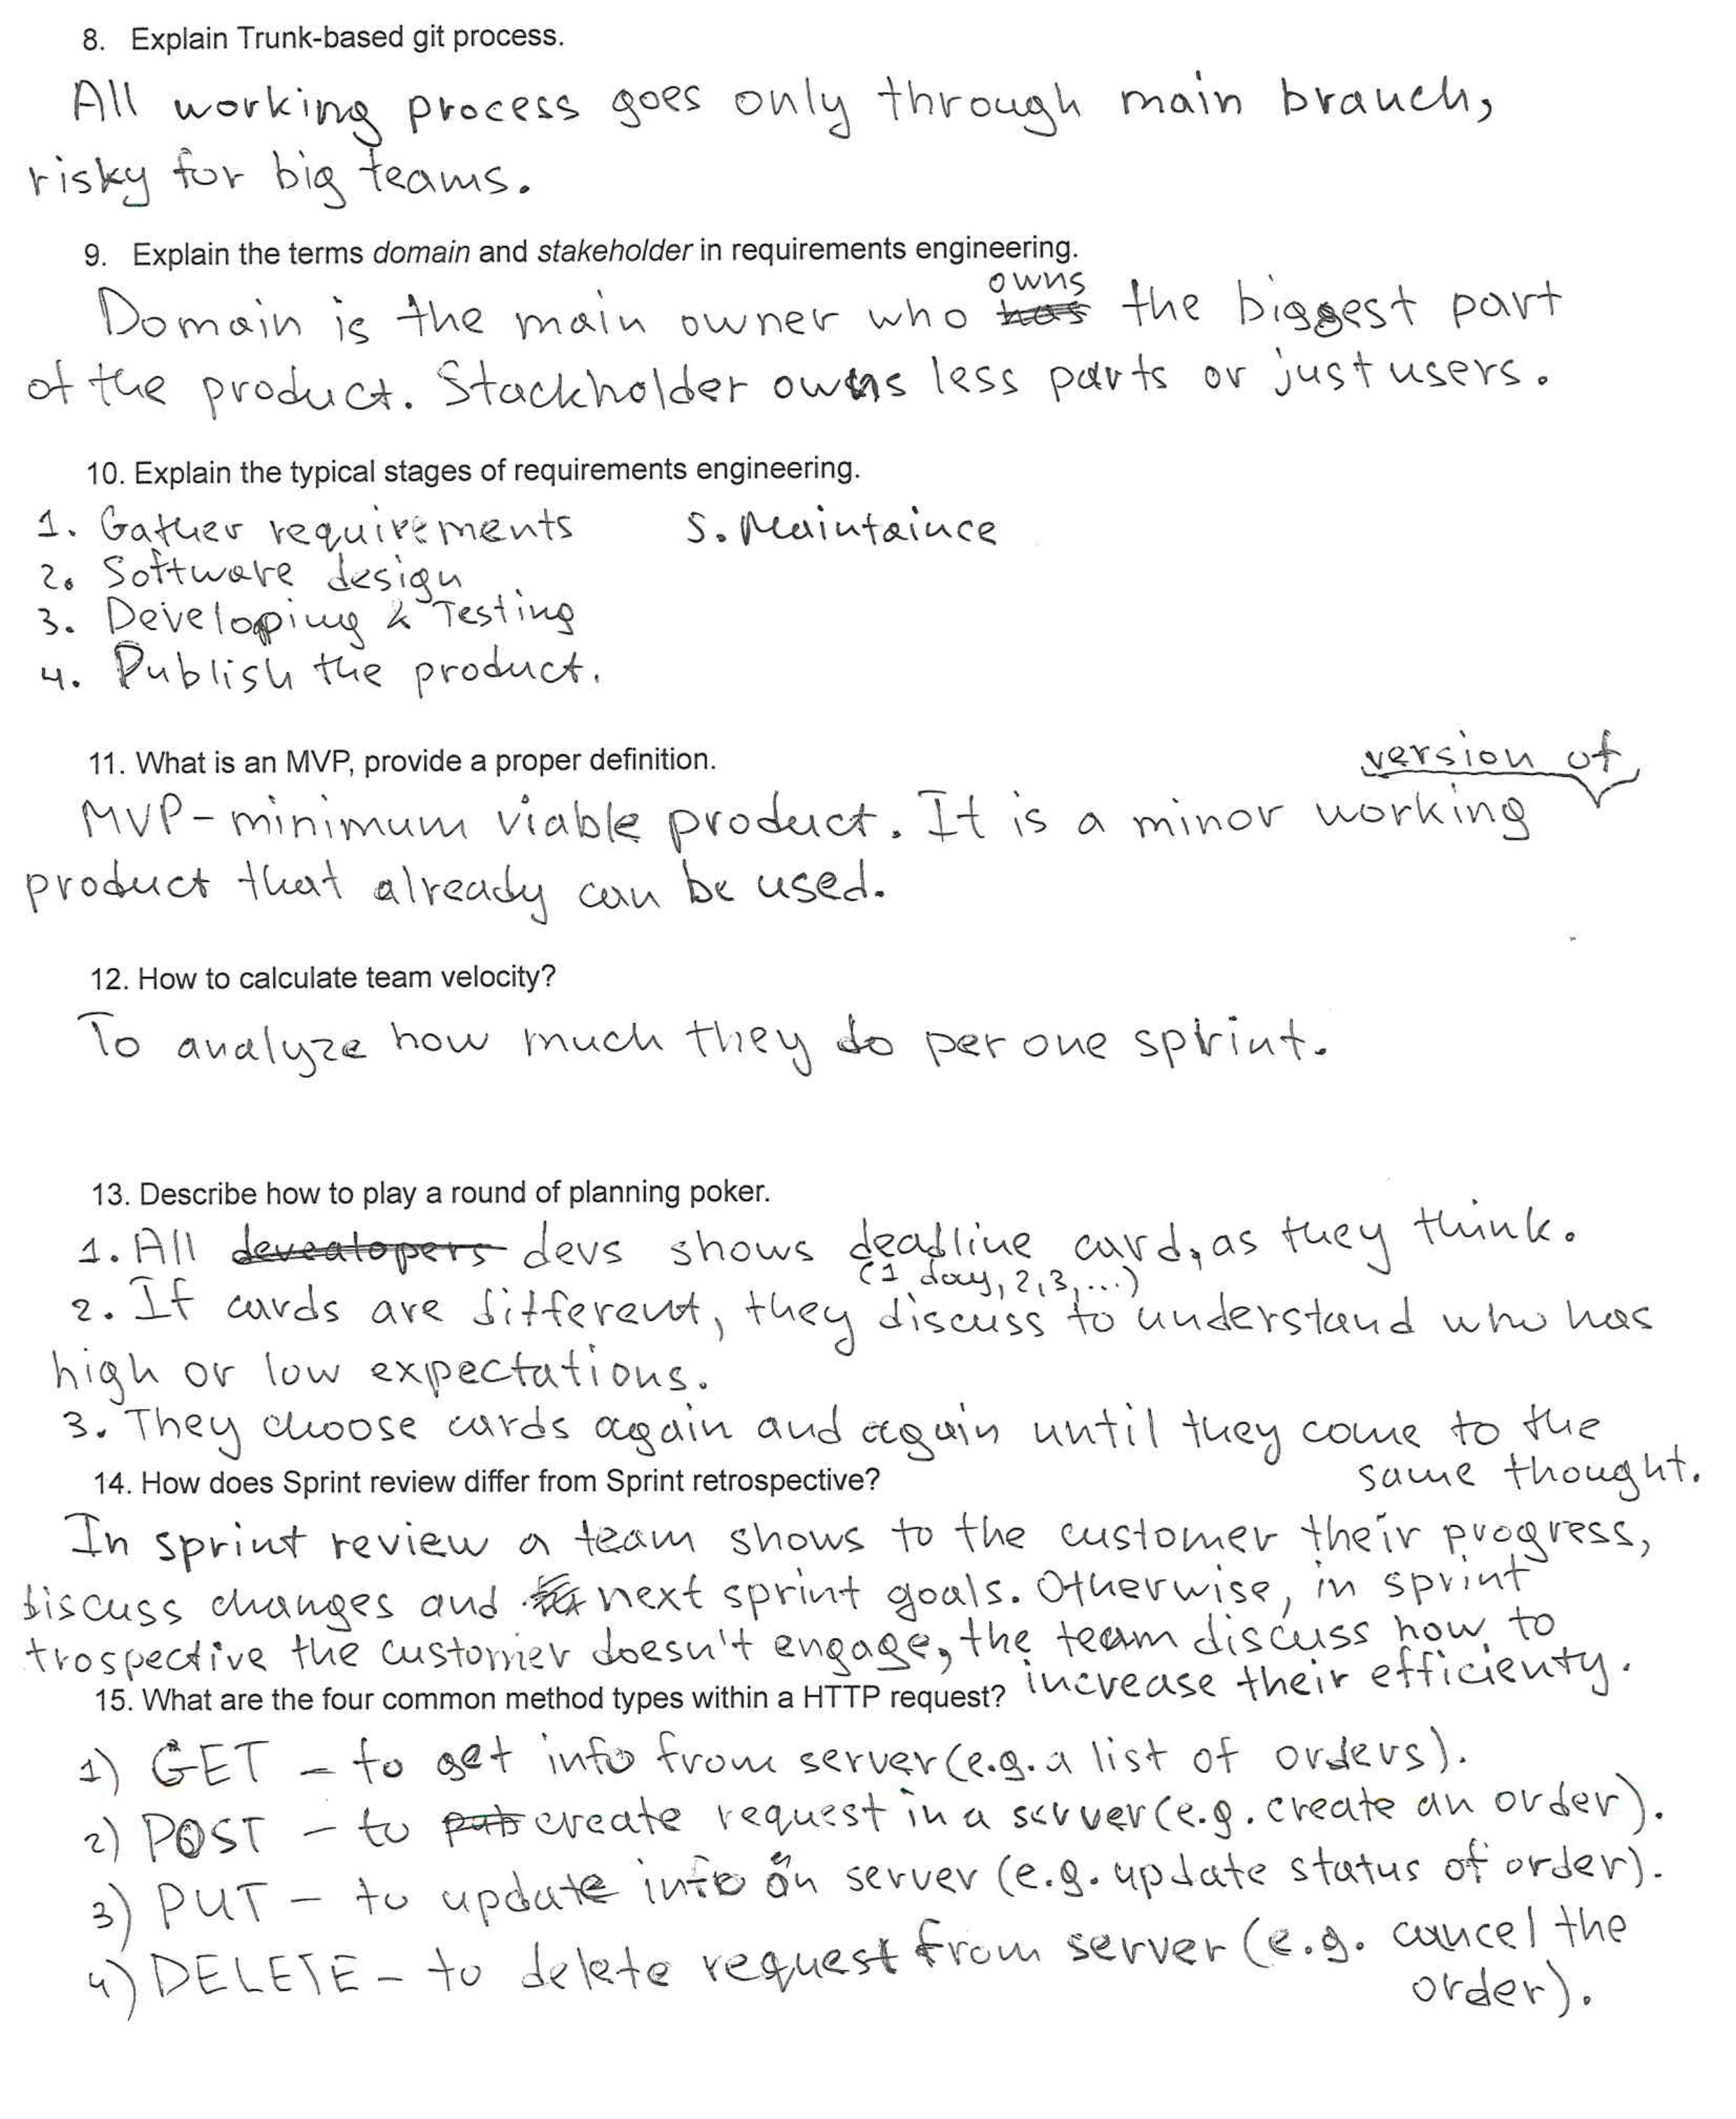 8. Explain Trunk-based git process.
All working process goes only through main branch,
risky for big teams.
9. Explain the terms domain and stakeholder in requirements engineering.
owns
Domain is the main owner who has the biggest part
of the product. Stackholder owns less parts or just users.
10. Explain the typical stages of requirements engineering.
1. Gather requirements 5. Maintaince
2. Software design
3. Developing & Testing
4. Publish the product.
11. What is an MVP, provide a proper definition.
version of
MVP - minimum viable product. It is a minor working
product that already can be used.
12. How to calculate team velocity?
To analyze how much they do per one sprint.
13. Describe how to play a round of planning poker.
1. All devealopers devs shows deadline card, as they think.
(1 day, 2, 3, ...)
2. If cards are different, they discuss to understand who has
high or low expectations.
3. They choose cards again and again until they come to the
same thought.
14. How does Sprint review differ from Sprint retrospective?
In sprint review a team shows to the customer their progress,
discuss changes and next sprint goals. Otherwise, in sprint
trospective the customer doesn't engage, the team discuss how to
increase their efficienty.
15. What are the four common method types within a HTTP request?
1) GET - to get info from server (e.g. a list of orders).
2) POST - to put create request in a server (e.g. create an order).
3) PUT - to update info on server (e.g. update status of order).
4) DELETE - to delete request from server (e.g. cancel the
order).